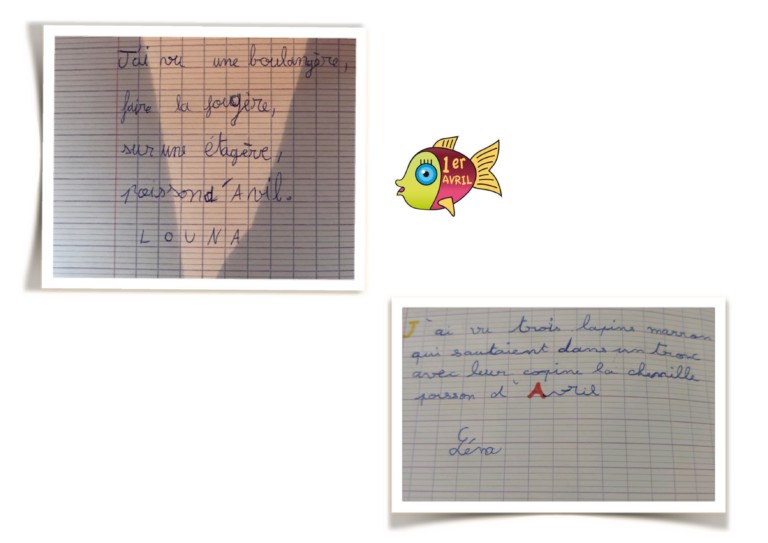 J'ai vu une boulangère,
faire la fougère,
sur une étagère,
poisson d'Avril.
LOUNA
1er
AVRIL
J'ai vu trois lapins marron
qui sautaient dans un tronc
avec leur copine la chenille
poisson d'Avril
Léna